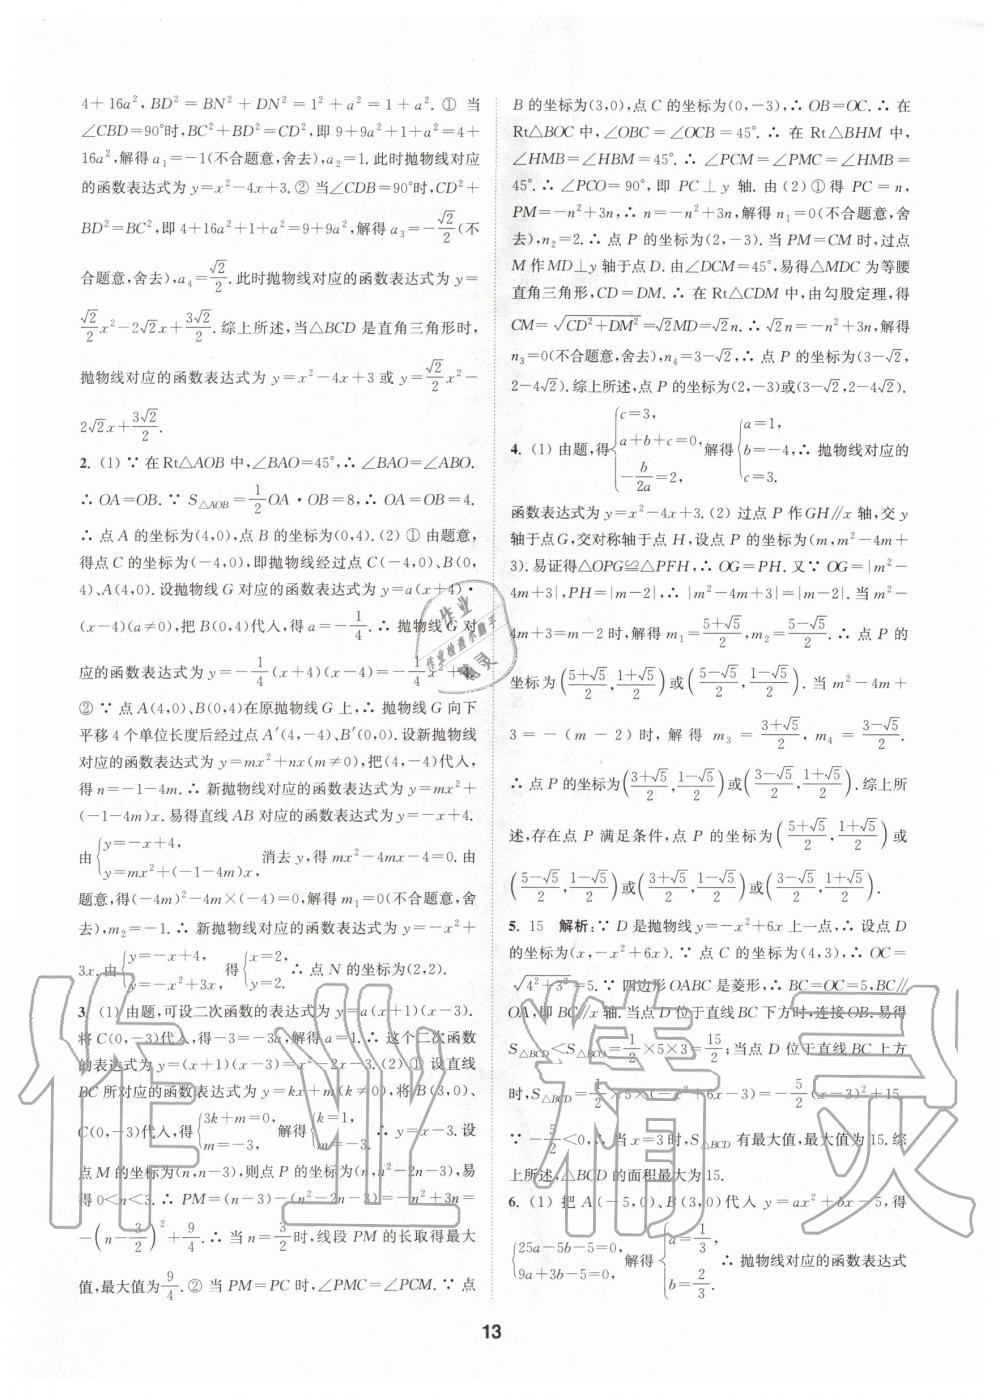 4+16a²,BD²=BN²+DN²=1²+a²=1+a². ① 当
∠CBD=90°时,BC²+BD²=CD²,即9+9a²+1+a²=4+
16a²,解得a₁=-1(不合题意,舍去),a₂=1.此时抛物线对应
的函数表达式为y=x²-4x+3.② 当∠CDB=90°时,CD²+
BD²=BC²,即4+16a²+1+a²=9+9a²,解得a₃=-√2/2(不
合题意,舍去),a₄=√2/2.此时抛物线对应的函数表达式为y=
√2/2x²-2√2x+3√2/2.综上所述,当△BCD是直角三角形时,
抛物线对应的函数表达式为y=x²-4x+3或y=√2/2x²-
2√2x+3√2/2.
2. (1) ∵ 在Rt△AOB中,∠BAO=45°,∴ ∠BAO=∠ABO.
∴ OA=OB. ∵ S△AOB=1/2OA·OB=8,∴ OA=OB=4.
∴ 点A的坐标为(4,0),点B的坐标为(0,4).(2) ① 由题意,
得点C的坐标为(-4,0),即抛物线经过点C(-4,0)、B(0,
4)、A(4,0).设抛物线G对应的函数表达式为y=a(x+4)·
(x-4)(a≠0),把B(0,4)代入,得a=-1/4.∴ 抛物线G对
应的函数表达式为y=-1/4(x+4)(x-4)=-1/4x²+4.
② ∵ 点A(4,0)、B(0,4)在原抛物线G上,∴ 抛物线G向下
平移4个单位长度后经过点A′(4,-4)、B′(0,0).设新抛物线
对应的函数表达式为y=mx²+nx(m≠0),把点A′(4,-4)代入,
得n=-1-4m.∴ 新抛物线对应的函数表达式为y=mx²+
(-1-4m)x.易得直线AB对应的函数表达式为y=-x+4.
由{y=-x+4, y=mx²+(-1-4m)x, 消去y,得mx²-4mx-4=0.由
题意,得(-4m)²-4m×(-4)=0,解得m₁=0(不合题意,舍
去),m₂=-1.∴ 新抛物线对应的函数表达式为y=-x²+
3x.由{y=-x+4, y=-x²+3x, 得{x=2, y=2. ∴ 点N的坐标为(2,2).
3. (1) 由题,可设二次函数的表达式为y=a(x+1)(x-3).
将C(0,-3)代入,得-3=-3a,解得a=1.∴ 这个二次函数
的表达式为y=(x+1)(x-3)=x²-2x-3.(2) ① 设直线
BC所对应的函数表达式为y=kx+m(k≠0),将B(3,0)、
C(0,-3)代入,得{3k+m=0, m=-3, 解得{k=1, m=-3. ∴ y=x-3.设
点M的坐标为(n,n-3),则点P的坐标为(n,n²-2n-3),易
得0<n<3.∴ PM=(n-3)-(n²-2n-3)=-n²+3n=
-(n-3/2)²+9/4.∴ 当n=3/2时,线段PM的长取得最大
值,最大值为9/4.② 当PM=PC时,∠PMC=∠PCM.∵ 点
B的坐标为(3,0),点C的坐标为(0,-3),∴ OB=OC.∴ 在
Rt△BOC中,∠OBC=∠OCB=45°.∴ 在Rt△BHM中,
∠HMB=∠HBM=45°.∴ ∠PCM=∠PMC=∠HMB=
45°.∴ ∠PCO=90°,即PC⊥y轴.由(2)①得PC=n,
PM=-n²+3n,∴ n=-n²+3n,解得n₁=0(不合题意,舍
去),n₂=2.∴ 点P的坐标为(2,-3).当PM=CM时,过点
M作MD⊥y轴于点D.由∠DCM=45°,易得△MDC为等腰
直角三角形,CD=DM.∴ 在Rt△CDM中,由勾股定理,得
CM=√(CD²+DM²)=√2MD=√2n.∴ √2n=-n²+3n,解得
n₃=0(不合题意,舍去),n₄=3-√2.∴ 点P的坐标为(3-√2,
2-4√2).综上所述,点P的坐标为(2,-3)或(3-√2,2-4√2).
4. (1) 由题,得{c=3, a+b+c=0, -b/2a=2, 解得{a=1, b=-4, c=3. ∴ 抛物线对应的
函数表达式为y=x²-4x+3.(2) 过点P作GH∥x轴,交y
轴于点G,交对称轴于点H,设点P的坐标为(m,m²-4m+
3).易证得△OPG≌△PFH,∴ OG=PH.又∵ OG=|m²-
4m+3|,PH=|m-2|,∴ |m²-4m+3|=|m-2|.当m²-
4m+3=m-2时,解得m₁=(5+√5)/2,m₂=(5-√5)/2.∴ 点P的
坐标为((5+√5)/2,(1+√5)/2)或((5-√5)/2,(1-√5)/2).当m²-4m+
3=-(m-2)时,解得m₃=(3+√5)/2,m₄=(3-√5)/2.
∴ 点P的坐标为((3+√5)/2,(1-√5)/2)或((3-√5)/2,(1+√5)/2).综上所
述,存在点P满足条件,点P的坐标为((5+√5)/2,(1+√5)/2)或
((5-√5)/2,(1-√5)/2)或((3+√5)/2,(1-√5)/2)或((3-√5)/2,(1+√5)/2).
5. 15 解析:∵ D是抛物线y=-x²+6x上一点,∴ 设点D
的坐标为(x,-x²+6x).∵ 点C的坐标为(4,3),∴ OC=
√(4²+3²)=5.∵ 四边形OABC是菱形,∴ BC=OC=5,BC∥
OA,即BC∥x轴.当点D位于直线BC下方时,连接OB,易得
S△BCD<S△BCO=1/2×5×3=15/2;当点D位于直线BC上方
时,S△BCD=1/2×5×(-x²+6x-3)=-5/2(x-3)²+15.
∵ -5/2<0,∴ 当x=3时,S△BCD有最大值,最大值为15.综
上所述,△BCD的面积最大为15.
6. (1) 把A(-5,0)、B(3,0)代入y=ax²+bx-5,得
{25a-5b-5=0, 9a+3b-5=0, 解得{a=1/3, b=2/3. ∴ 抛物线对应的函数表达式
13
作业精灵
作业
作业检查小助手
精灵